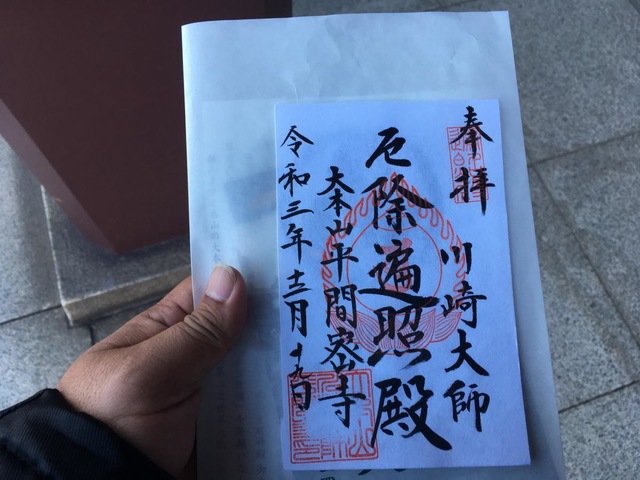 奉拝
川崎大師
厄除遍照殿
大本山平間寺
令和三年十二月十九日